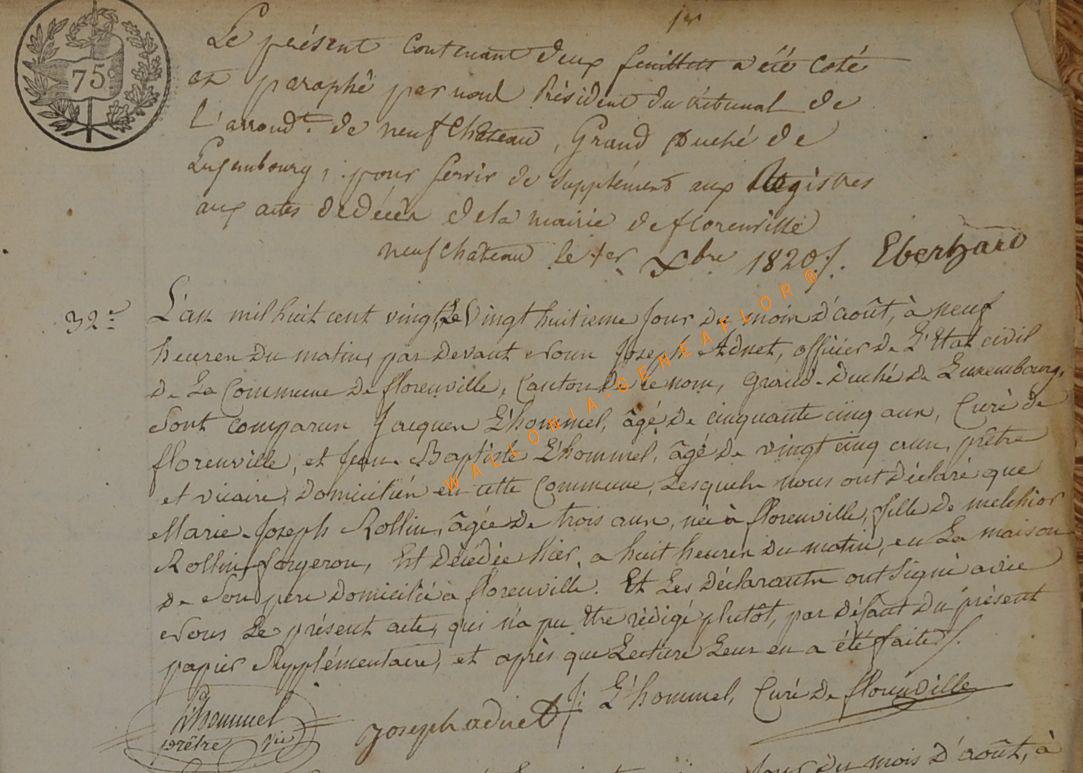 1er
75
Le présent contenant deux feuillets a été coté
et paraphé par nous Président du tribunal de
l'arrondt. de neufchateau, Grand Duché de
Luxembourg, pour servir de supplément aux Registres
aux actes de décès de la mairie de florenville
neufchateau le 1er Xbre 1820 /. Eberhard
32e
L'an mil huit cent vingt, le vingt huitieme jour du mois d'août, à neuf
heures du matin, par devant Nous Joseph Adnet, officier de L'Etat civil
de La Commune de florenville, Canton de ce nom, grand-Duché de Luxembourg,
sont comparus Jacques L'hommel, âgé de cinquante cinq ans, Curé de
florenville, et Jean-Baptiste L'hommel, âgé de vingt cinq ans, prêtre
et vicaire, domiciliés en cette Commune, Lesquels nous ont déclaré que
Marie-Joseph Rollin, âgée de trois ans, née à florenville, fille de melchior
Rollin, forgeron, Est Décédée hier, à huit heures du matin, en La maison
de son pere domicilié à florenville. Et Les déclarants ont signé avec
Nous Le présent acte, qui n'a pu être rédigé plutôt, par défaut du présent
papier Supplémentaire, et après que Lecture Leur en a été faite /.
J: L'hommel, Curé de florenville
L'hommel
prêtre vic
joseph adnet
jour du mois d'août, à
WALLONIA-GENEAFLOR@